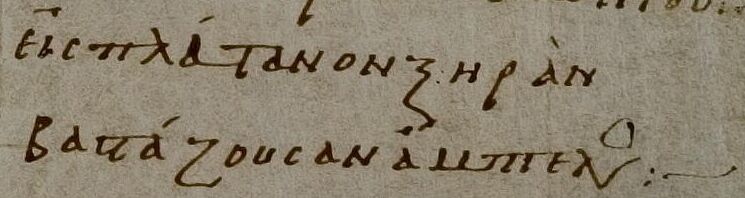 εἰς πλάτανον ξηρὰν
βαστάζουσαν ἄμπελον :—